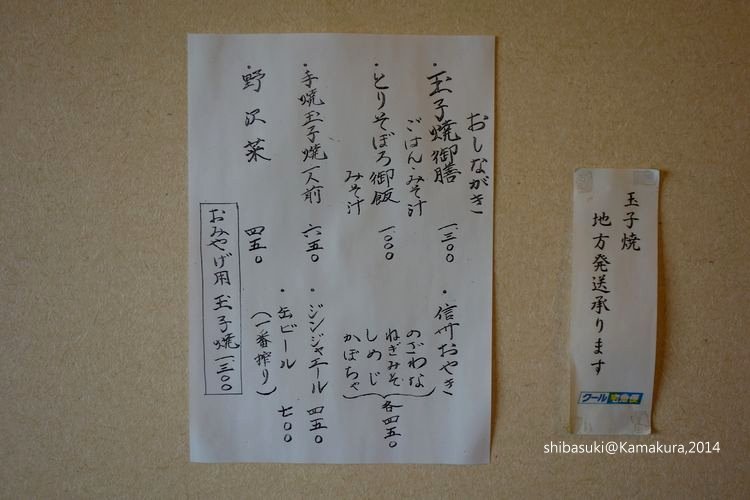 おしながき
・玉子焼御膳 一、三〇〇
ごはん・みそ汁
・とりそぼろ御飯 一、〇〇〇
みそ汁
・手焼玉子焼一人前 六五〇
・野沢菜 四五〇
・信州おやき
のざわな
ねぎみそ
しめじ
かぼちゃ
各四五〇
・ジンジャエール 四五〇
・缶ビール 七〇〇
(一番搾り)
おみやげ用玉子焼 一、三〇〇
玉子焼
地方発送承ります
クール宅急便
shibasuki@Kamakura,2014